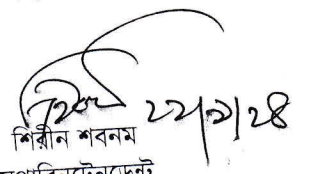 ২২/৯/২৪
শিরীন শবনম
সুপারিনটেনডেন্ট